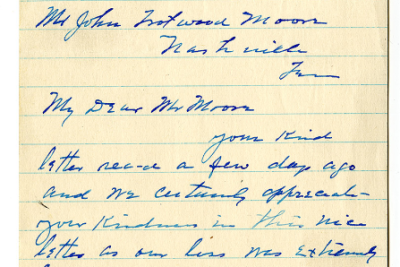 Mr John Trotwood Moore
Nashville
Tenn
My Dear Mr Moore
your kind
letter rec-d a few days ago
and we certainly appreciate
your kindness in this nice
letter as our loss was extremely